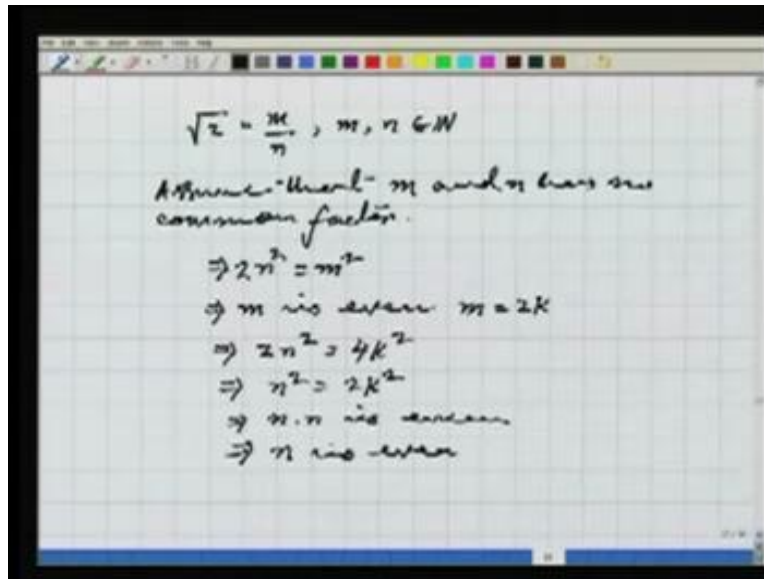 √2 = m/n, m, n ∈ ℕ
Assume that m and n has no
common factor.
⇒ 2n² = m²
⇒ m is even m = 2k
⇒ 2n² = 4k²
⇒ n² = 2k²
⇒ n.n is even
⇒ n is even